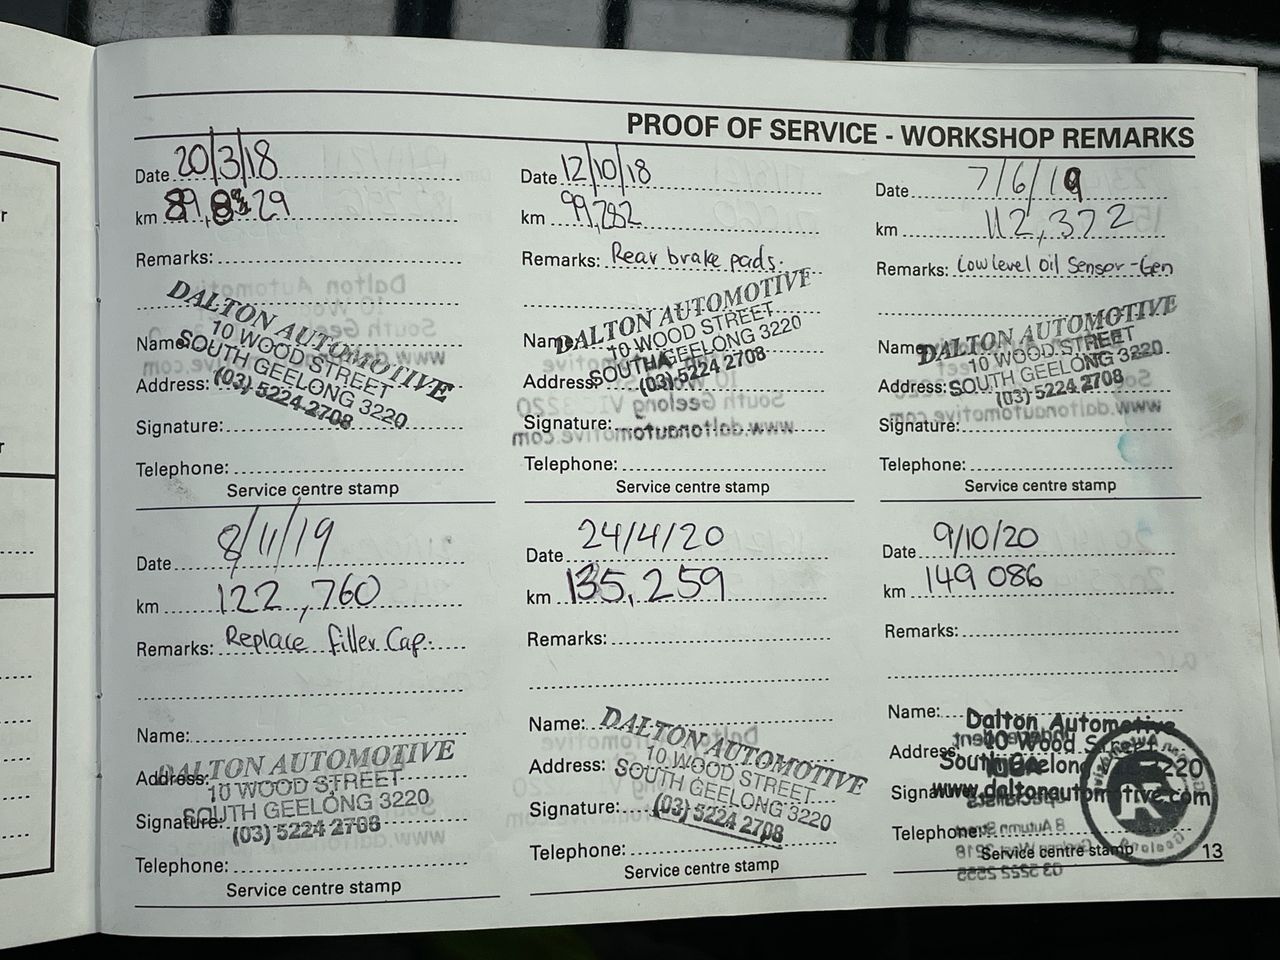 PROOF OF SERVICE - WORKSHOP REMARKS
Date 20/3/18
km 89, 29
Remarks:
Name
Address:
Signature:
Telephone:
DALTON AUTOMOTIVE
10 WOOD STREET
SOUTH GEELONG 3220
(03) 5224 2708
Service centre stamp
Date 12/10/18
km 99,282
Remarks: Rear brake pads.
Name
Address:
Signature:
Telephone:
DALTON AUTOMOTIVE
10 WOOD STREET
SOUTH GEELONG 3220
(03) 5224 2708
Service centre stamp
Date 7/6/19
km 112,372
Remarks: Low level Oil Sensor-Gen
Name
Address:
Signature:
Telephone:
DALTON AUTOMOTIVE
10 WOOD STREET
SOUTH GEELONG 3220
(03) 5224 2708
Service centre stamp
Date 8/11/19
km 122,760
Remarks: Replace filler Cap.
Name:
Address:
Signature:
Telephone:
DALTON AUTOMOTIVE
10 WOOD STREET
SOUTH GEELONG 3220
(03) 5224 2708
Service centre stamp
Date 24/4/20
km 135,259
Remarks:
Name:
Address:
Signature:
Telephone:
DALTON AUTOMOTIVE
10 WOOD STREET
SOUTH GEELONG 3220
(03) 5224 2708
Service centre stamp
Date 9/10/20
km 149 086
Remarks:
Name:
Address
Signature
Telephone:
Dalton Automotive
10 Wood Street
South Geelong 3220
www.daltonautomotive.com
Service centre stamp
13